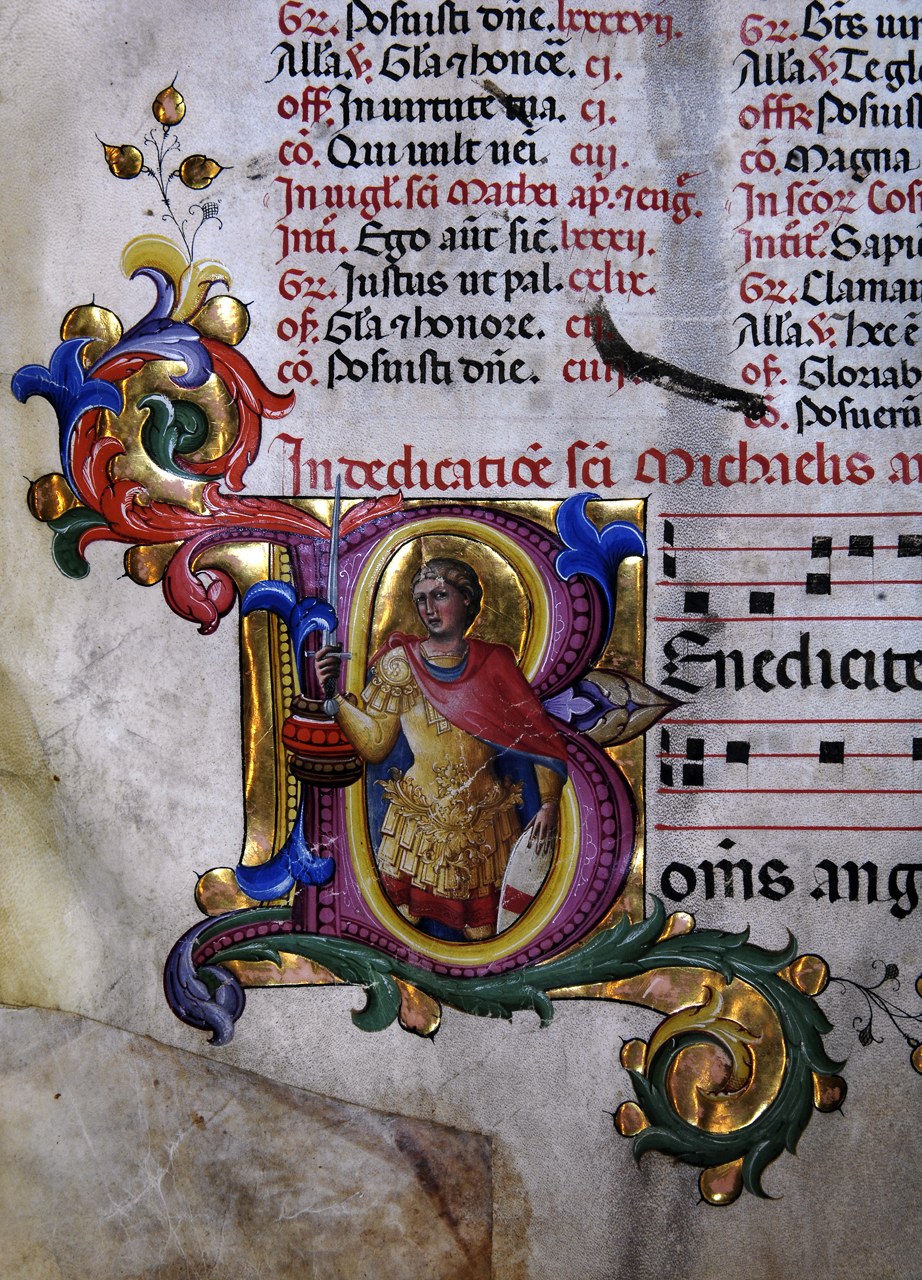 Gr. Posuisti dñe. lxxxxvii.
All'a. v. Gl'a ⁊ honoē. cj.
off. In uirtute tua. cj.
cō. Qui uult uēi. ciij.
In uigł. sci Mathei ap. ⁊ eug̃.
Inti. Ego aūt sic̄. lxxxij.
Gr. Justus ut pal. cxlix.
of. Gl'a ⁊ honore.
cō. Posuisti dñe.
Gr.
All'a. v. Te
offr
cō. Magna
In scōr
Intit. Sapi
Gr. Claman
All'a. v. hec ē
of. Gloriab
cō. Posuerū
In dedicatiōe sci Michaelis
BEnedicite
om̄s ang